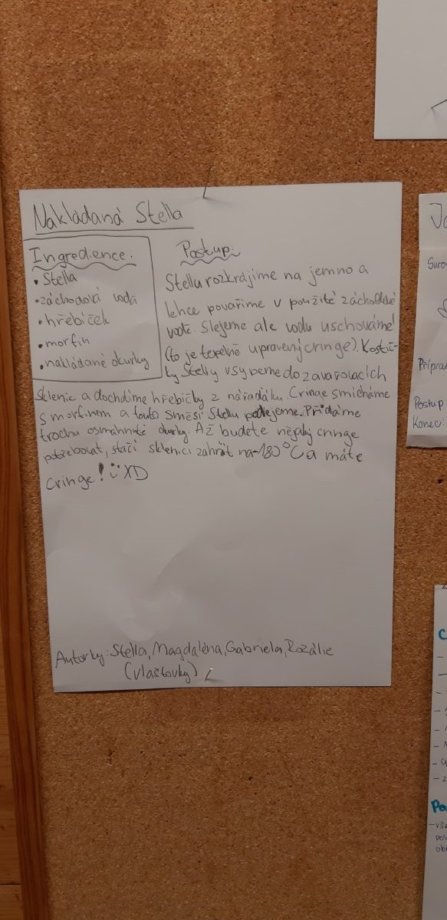 Nakládaná Stella
Ingredience:
• Stella
• záchodová voda
• hřebíček
• morfin
• nakládané okurky
Postup:
Stellu rozkrájíme na jemno a
lehce povaříme v použité záchodové
vodě slejeme ale vodu uschováme!
(to je tepelně upravený cringe). Kostič-
ky Stelly vsypeme do zavařovacích
sklenic a dochutíme hřebíčky z nářaďáku. Cringe smícháme
s morfinem a touto směsí Stellu polejeme. Přidáme
trochu osmahnuté okurky. Až budete nějaký cringe
potřebovat, stačí sklenici zahřát na 180°C a máte
cringe! XD
Autorky: Stella, Magdaléna, Gabriela, Rozálie
(vlaštovky)
Suro
Příprav
Postup
Konec